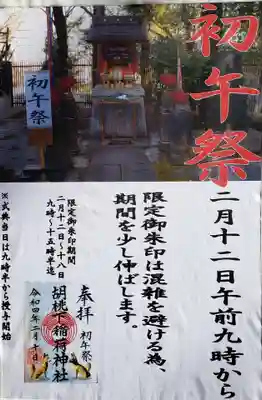 初午祭
初午祭
二月十二日午前九時から
限定御朱印は混雑を避ける為、
期間を少し伸ばします。
限定御朱印期間
二月十二日~十八日
九時~十五時半迄
奉拝
初午祭
胡桃下稲荷神社
令和四年二月十日
※式典当日は九時半から授与開始